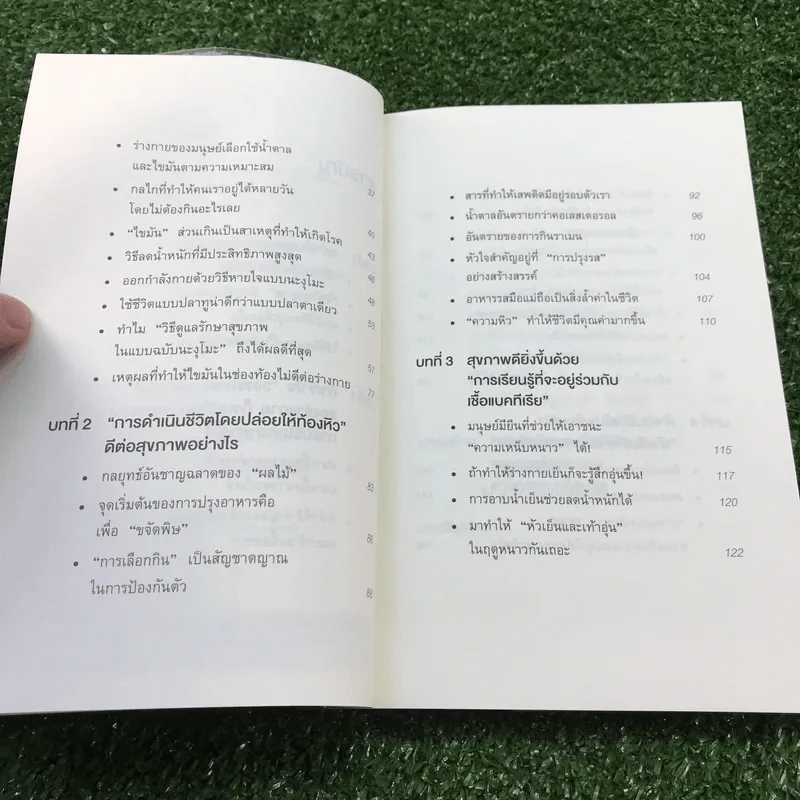 • ร่างกายของมนุษย์เลือกใช้น้ำตาล
และไขมันตามความเหมาะสม 37
• กลไกที่ทำให้คนเราอยู่ได้หลายวัน
โดยไม่ต้องกินอะไรเลย 40
• “ไขมัน” ส่วนเกินเป็นสาเหตุที่ทำให้เกิดโรค 43
• วิธีลดน้ำหนักที่มีประสิทธิภาพสูงสุด 46
• ออกกำลังกายด้วยวิธีหายใจแบบนะงุโมะ 48
• ใช้ชีวิตแบบปลาทูน่าดีกว่าแบบปลาตาเดียว 53
• ทำไม “วิธีดูแลรักษาสุขภาพ
ในแบบฉบับนะงุโมะ” ถึงได้ผลดีที่สุด 57
• เหตุผลที่ทำให้ไขมันในช่องท้องไม่ดีต่อร่างกาย 77
บทที่ 2 “การดำเนินชีวิตโดยปล่อยให้ท้องหิว”
ดีต่อสุขภาพอย่างไร
• กลยุทธ์อันชาญฉลาดของ “ผลไม้” 83
• จุดเริ่มต้นของการปรุงอาหารคือ
เพื่อ “ขจัดพิษ” 86
• “การเลือกกิน” เป็นสัญชาตญาณ
ในการป้องกันตัว 88
• สารที่ทำให้เสพติดมีอยู่รอบตัวเรา 92
• น้ำตาลอันตรายกว่าคอเลสเตอรอล 96
• อันตรายของการกินราเมน 100
• หัวใจสำคัญอยู่ที่ “การปรุงรส”
อย่างสร้างสรรค์ 104
• อาหารรสมือแม่ถือเป็นสิ่งล้ำค่าในชีวิต 107
• “ความหิว” ทำให้ชีวิตมีคุณค่ามากขึ้น 110
บทที่ 3 สุขภาพดียิ่งขึ้นด้วย
“การเรียนรู้ที่จะอยู่ร่วมกับ
เชื้อแบคทีเรีย”
• มนุษย์มียีนที่ช่วยให้เอาชนะ
“ความเหน็บหนาว” ได้! 115
• ถ้าทำให้ร่างกายเย็นก็จะรู้สึกอุ่นขึ้น! 117
• การอาบน้ำเย็นช่วยลดน้ำหนักได้ 120
• มาทำให้ “หัวเย็นและเท้าอุ่น”
ในฤดูหนาวกันเถอะ 122